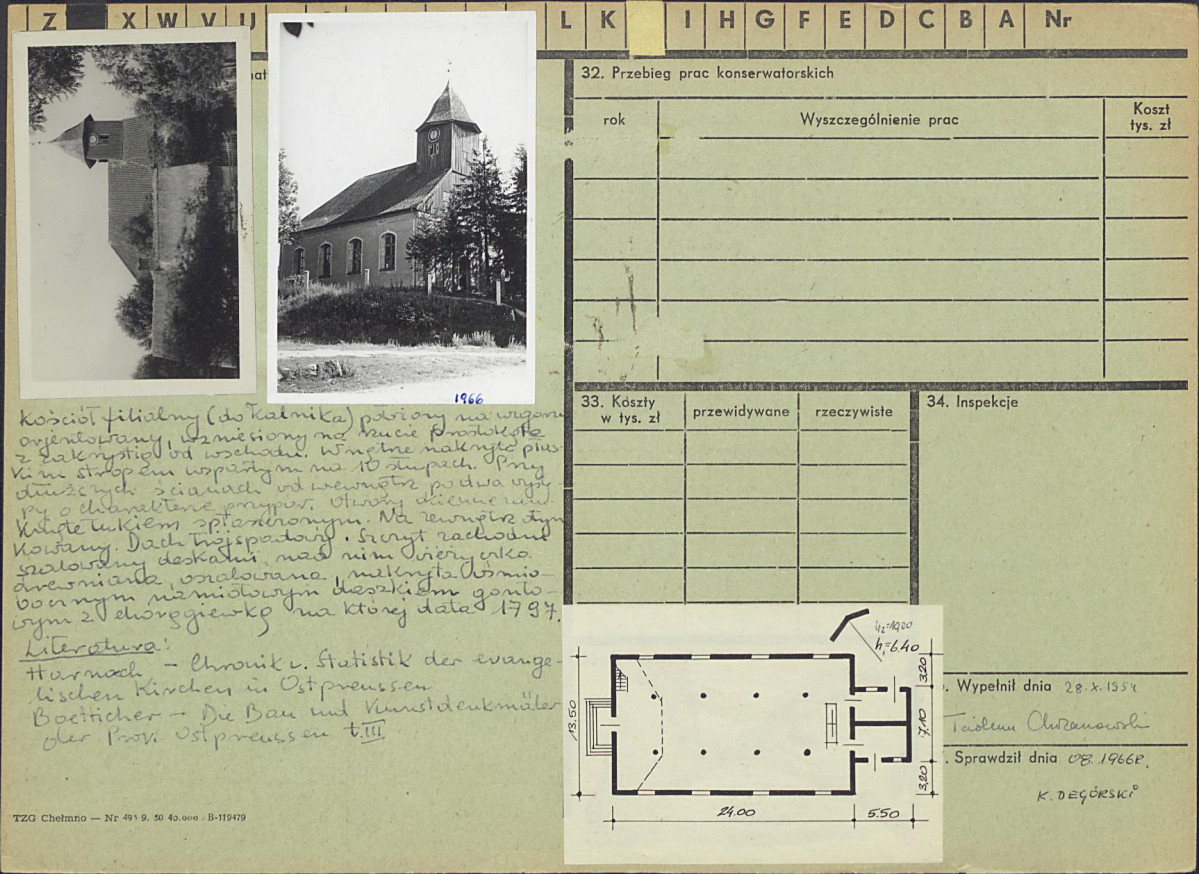 Z X W V U L K I H G F E D C B A Nr
32. Przebieg prac konserwatorskich
rok
Wyszczególnienie prac
Koszt
tys. zł
1966
Kościół filialny (do Kalnika) położony na wzgórzu
orjentowany, wzniesiony na rzucie prostokąta
z zakrystią od wschodu. Wnętrze nakryte płas-
kim stropem wspartym na 10 słupach. Przy
dłuższych ścianach od wewnątrz po dwa wystę
py o charakterze przypór. Otwory dzienne zam
knięte łukiem spłaszczonym. Na zewnątrz otyn
kowany. Dach trójspadowy. Szczyt zachodni
szalowany deskami, nad nim wieżyczka
drewniana, oszalowana, nakryta ośmio-
bocznym namiotowym daszkiem gonto-
wym z chorągiewką na której data 1797.
Literatura:
Harnoch – Chronik u. Statistik der evange-
lischen Kirchen in Ostpreussen
Boetticher – Die Bau und Kunstdenkmäler
der Prov. Ostpreussen t. III
33. Koszty
w tys. zł
przewidywane
rzeczywiste
34. Inspekcje
h₁=6.40
3.20
7.10
3.20
13.50
24.00
5.50
Wypełnił dnia 28.X.1954
Tadeusz Chrzanowski
Sprawdził dnia 08.1966r.
K. DEGÓRSKI
TZG Chełmno — Nr 49 9. 50 40.000 B-119479